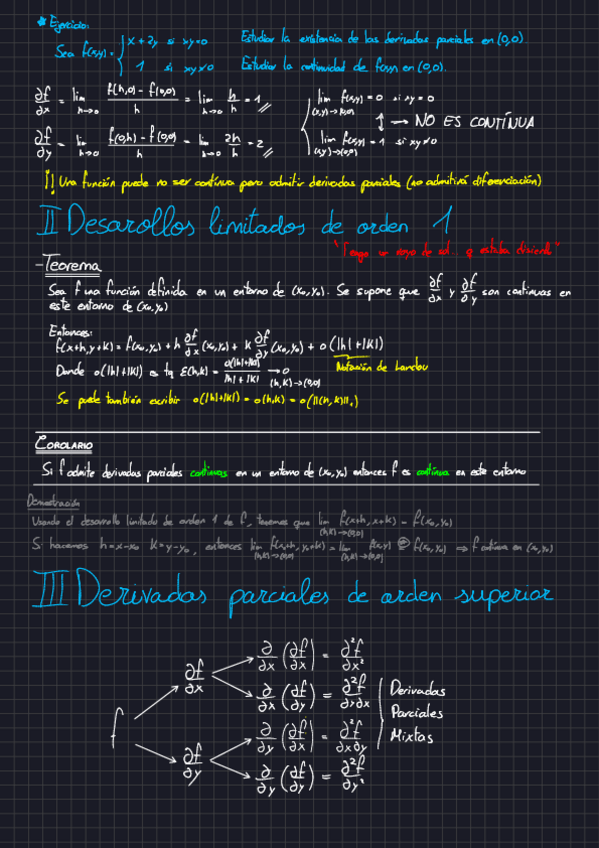 * Ejercicio:
Sea f(x,y) = { x + 2y si xy=0 Estudiar la existencia de las derivadas parciales en (0,0).
1 si xy≠0 Estudiar la continuidad de f(x,y) en (0,0).
∂f/∂x = lim h→0 f(h,0) - f(0,0)/h = lim h→0 h/h = 1 // lim (x,y)→(0,0) f(x,y) = 0 si xy = 0
↕ → NO ES CONTÍNUA
∂f/∂y = lim h→0 f(0,h) - f(0,0)/h = lim h→0 2h/h = 2 // lim (x,y)→(0,0) f(x,y) = 1 si xy≠0
¡¡ Una función puede no ser contínua pero admitir derivadas parciales (no admitirá diferenciación)
II Desarollos limitados de orden 1
"Tengo un rayo de sol... y estaba diciendo"
- Teorema
Sea f una función definida en un entorno de (x₀,y₀). Se supone que ∂f/∂x y ∂f/∂y son contínuas en
este entorno de (x₀,y₀)
Entonces:
f(x+h, y+k) = f(x₀,y₀) + h ∂f/∂x (x₀,y₀) + k ∂f/∂y (x₀,y₀) + o(|h|+|k|)
Donde o(|h|+|k|) es tq ε(h,k) = o(|h|+|k|)/|h|+|k| → 0 (h,k)→(0,0) Notación de Landau
Se puede también escribir o(|h|+|k|) = o(h,k) = o(||(h,k)||₁)
COROLARIO
Si f admite derivadas parciales contínuas en un entorno de (x₀,y₀) entonces f es contínua en este entorno
Demostración
Usando el desarrollo limitado de orden 1 de f, tenemos que lim (h,k)→(0,0) f(x+h, x+k) = f(x₀,y₀)
Si hacemos h=x-x₀ k=y-y₀, entonces lim (h,k)→(0,0) f(x₀+h, y₀+k) = lim f(x,y) = f(x₀,y₀) ⇒ f contínua en (x₀,y₀)
III Derivadas parciales de orden superior
∂/∂x (∂f/∂x) = ∂²f/∂x²
∂f/∂x
∂/∂x (∂f/∂y) = ∂²f/∂x∂x Derivadas
f Parciales
∂/∂y (∂f/∂x) = ∂²f/∂x∂y Mixtas
∂f/∂y
∂/∂y (∂f/∂y) = ∂²f/∂y²